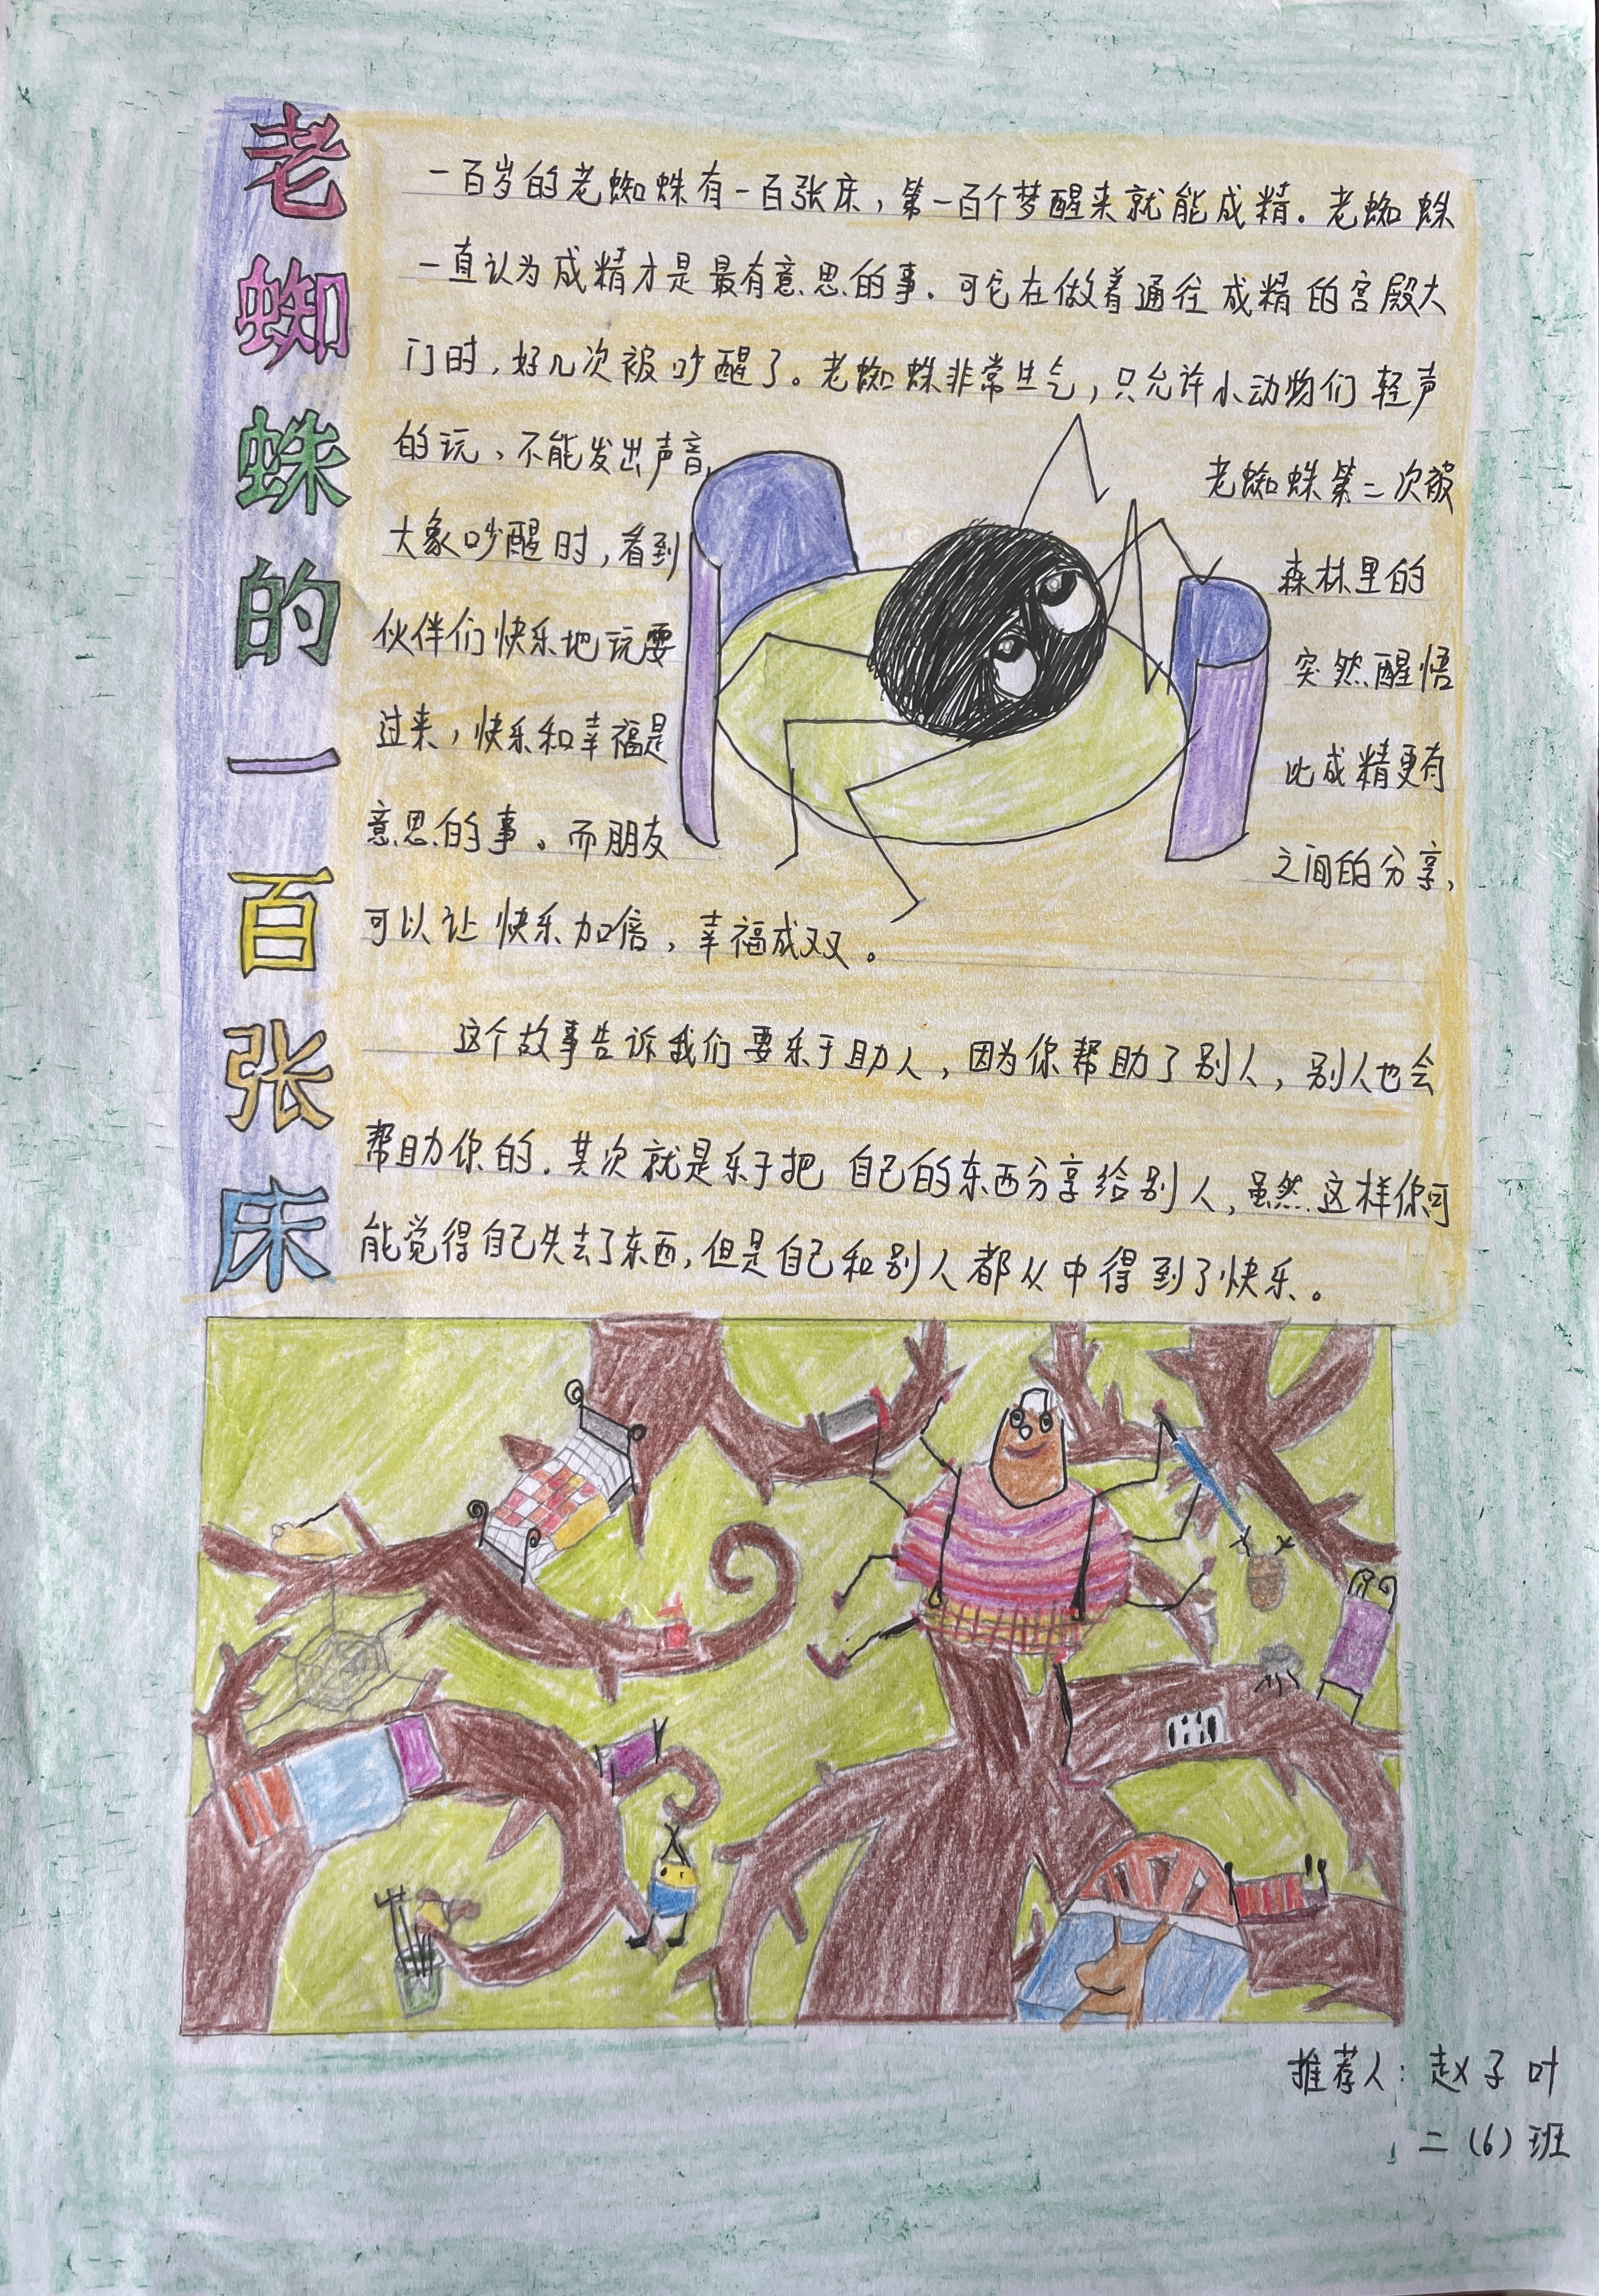 老蜘蛛的一百张床
一百岁的老蜘蛛有一百张床，第一百个梦醒来就能成精。老蜘蛛
一直认为成精才是最有意思的事。可它在做着通往成精的宫殿大
门时，好几次被吵醒了。老蜘蛛非常生气，只允许小动物们轻声
的玩、不能发出声音。 老蜘蛛第二次被
大象吵醒时，看到 森林里的
伙伴们快乐地玩耍 突然醒悟
过来，快乐和幸福是 比成精更有
意思的事。而朋友 之间的分享，
可以让快乐加倍，幸福成双。
这个故事告诉我们要乐于助人，因为你帮助了别人，别人也会
帮助你的。其次就是乐于把自己的东西分享给别人，虽然这样你可
能觉得自己失去了东西，但是自己和别人都从中得到了快乐。
推荐人：赵子叶
二（6）班